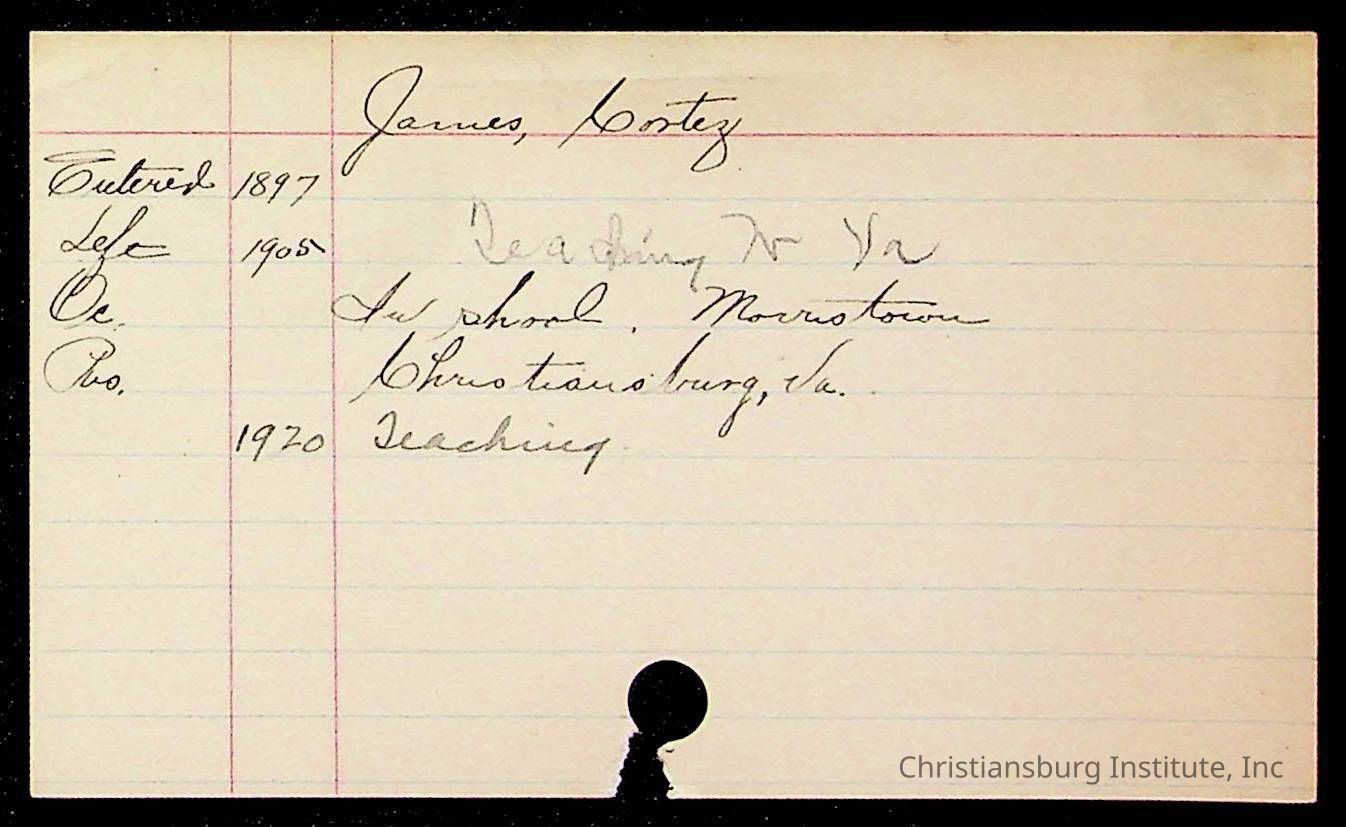 James, Cortez
Entered 1897
Left 1905 Teaching W Va
Oc. In school. Morristown
Res. Christiansburg, Va.
1920 Teaching
Christiansburg Institute, Inc